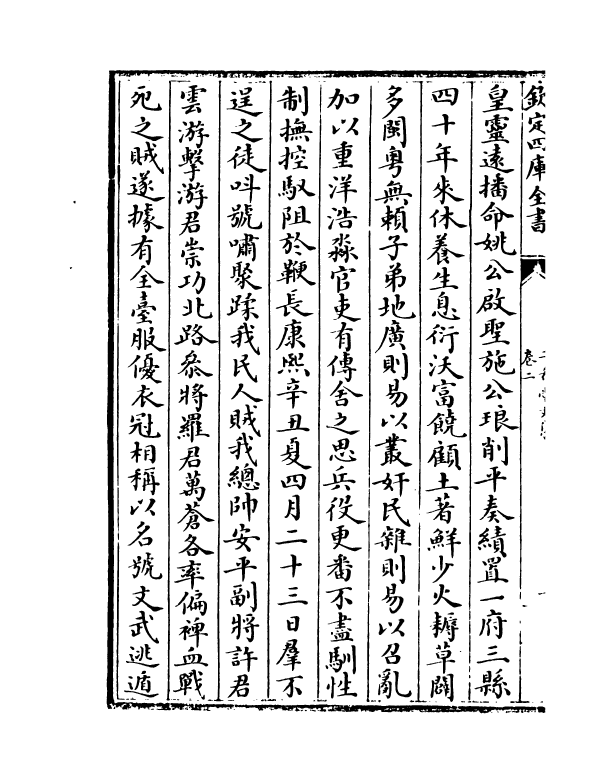 欽定四庫全書
卷二
皇靈遠播命姚公啟聖施公琅削平奏績置一府三縣
四十年來休養生息衍沃富饒顧土著鮮少火耨草闢
多閩粵無賴子弟地廣則易以叢奸民雜則易以召亂
加以重洋浩淼官吏有傳舍之思兵役更番不盡馴性
制撫控馭阻於鞭長康熙辛丑夏四月二十三日羣不
逞之徒呌號嘯聚蹂我民人賊我總帥安平副將許君
雲游擊游君崇功北路叅將羅君萬蒼各率偏裨血戰
死之賊遂據有全臺服優衣冠相稱以名號文武逃遁